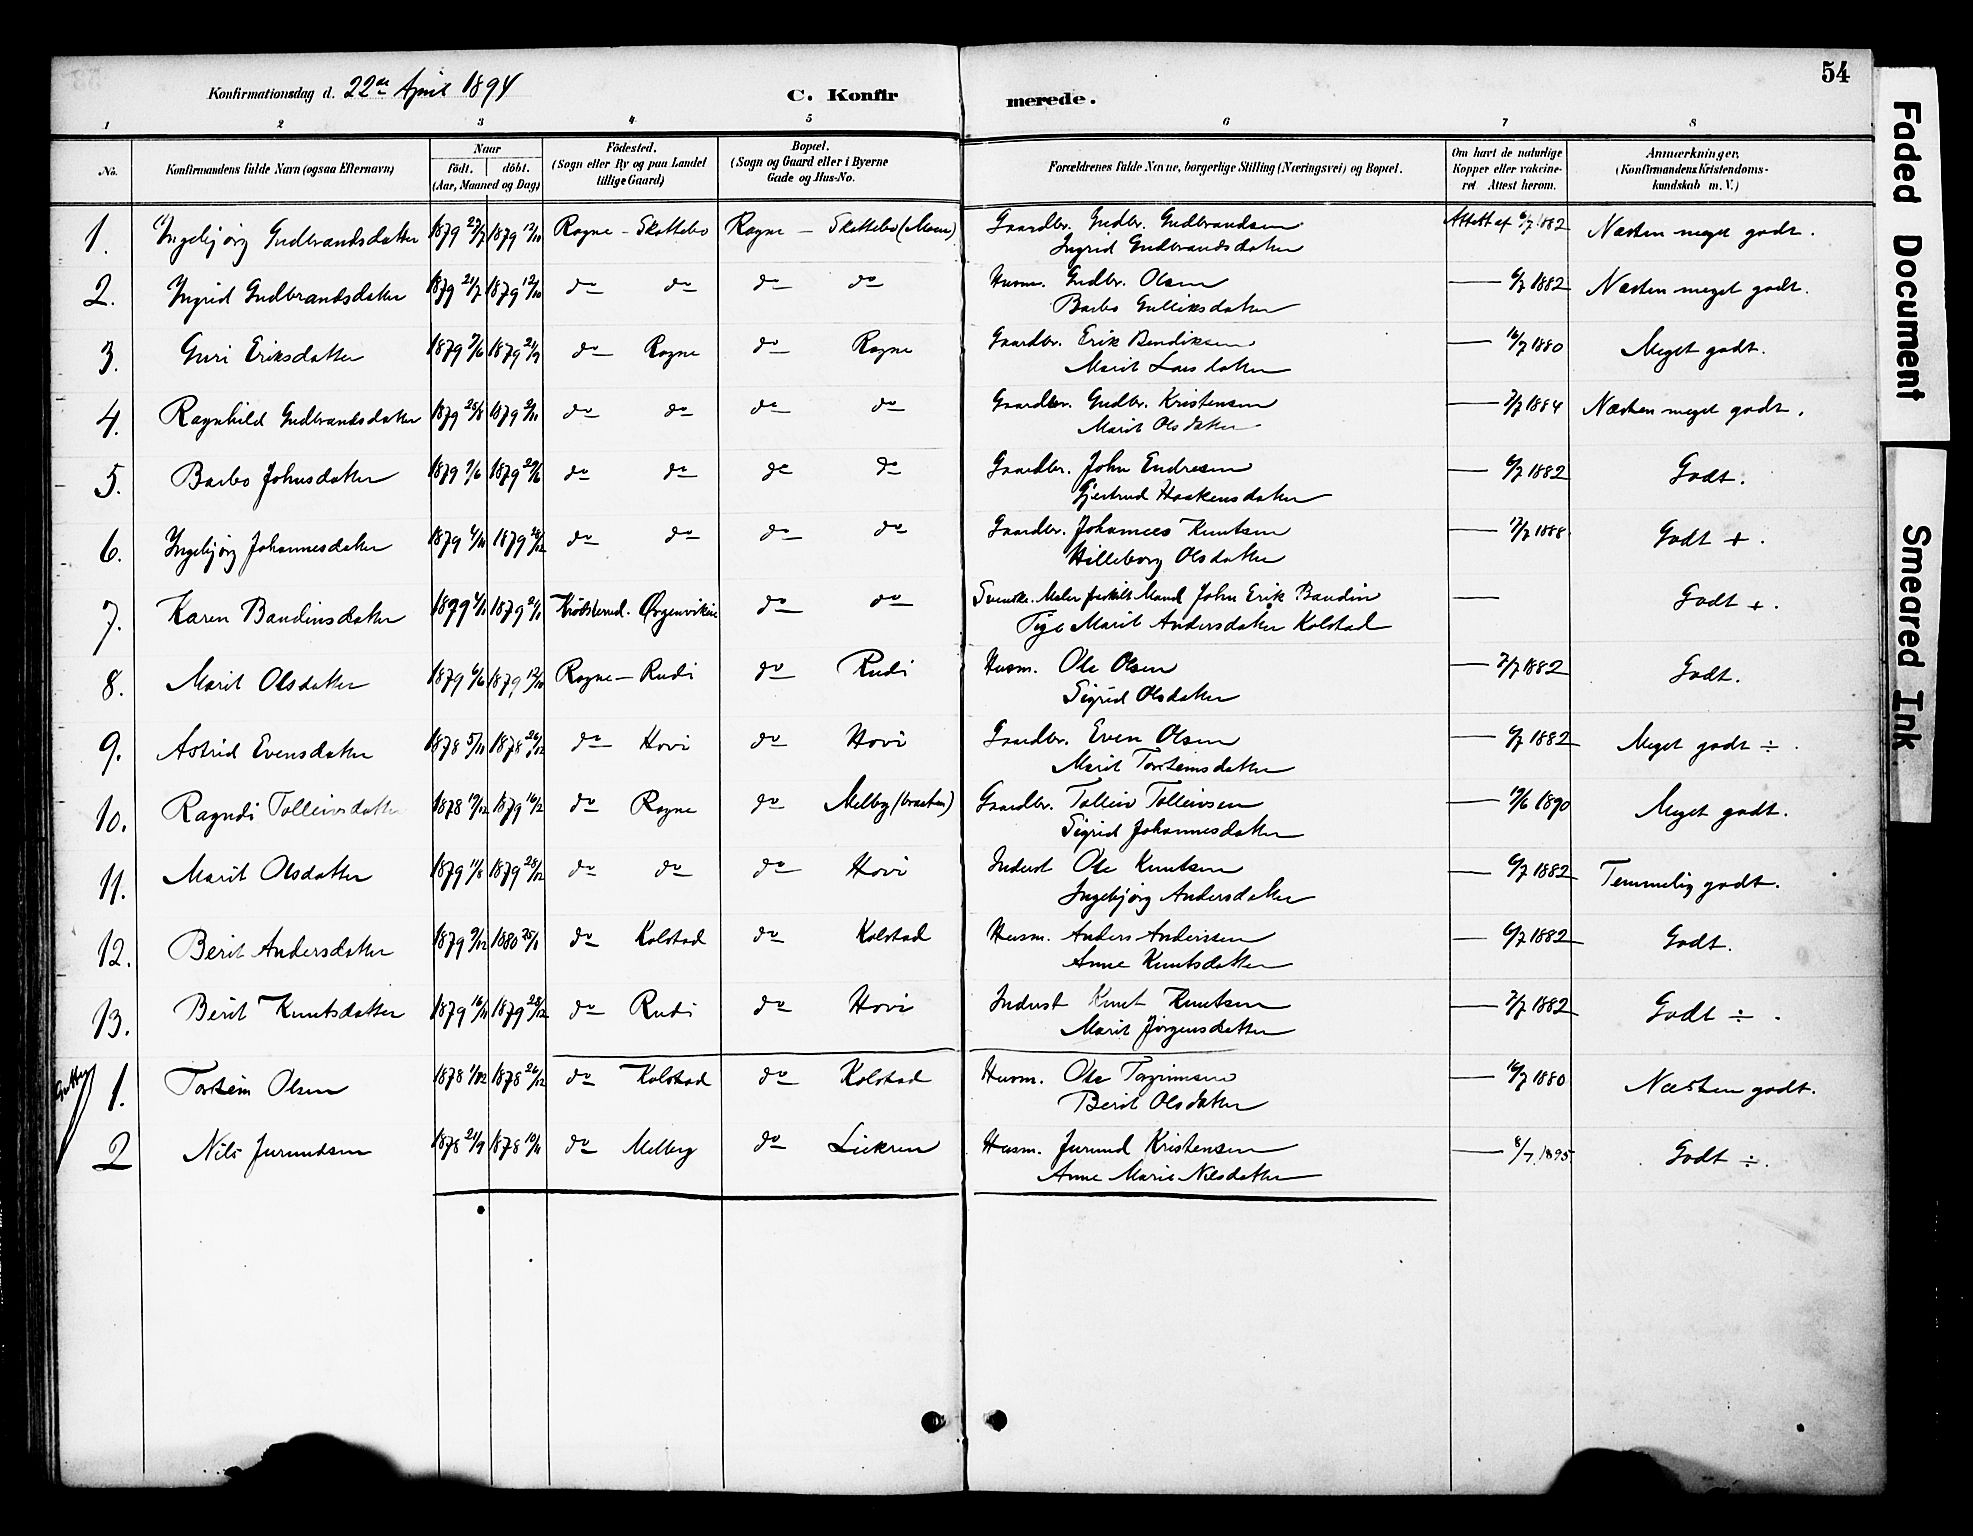 54
Konfirmationsdag d. 22de April 1894
C. Konfir merede.
1 2 3 4 5 6 7 8
No. Konfirmandens fulde Navn (ogsaa Efternavn) Naar födt. döbt. (Aar, Maaned og Dag) Födested. (Sogn eller By og paa Landet tillige Gaard) Bopæl. (Sogn og Gaard eller i Byerne Gade og Hus-No. Forældrenes fulde Navne, borgerlige Stilling (Næringsvei) og Bopæl. Om havt de naturlige Kopper eller vakcineret Attest herom. Anmærkninger. (Konfirmandens Kristendomskundskab m. V.)
1. Ingebjørg Gudbrandsdatter 1879 1879 12/10 Rogne - Skattebo Rogne - Skattebo (Moen) Gaardbr. Gudbr. Gudbrandsen Attest af 6/7 1882 Næsten meget godt.
Ingrid Gudbrandsdatter
2. Ingrid Gudbrandsdatter 1879 21/7 1879 12/10 do do do do Husm. Gudbr. Olsen — 6/7 1882 Næsten meget godt.
Barbo Gulliksdatter
3. Guri Eriksdatter 1879 1879 21/9 do Rogne do Rogne Gaardbr. Erik Bendiksen — 16/7 1880 Meget godt.
Marit Larsdatter
4. Ragnhild Gudbrandsdatter 1879 25/8 1879 2/11 do do do do Gaardbr. Gudbr. Kristensen — 7/7 1884 Næsten meget godt.
Marit Olsdatter
5. Barbo Johnsdatter 1879 9/6 1879 29/6 do do do do Gaardbr. John Endresen — 6/7 1882 Godt.
Gjertrud Haakensdatter
6. Ingebjørg Johannesdatter 1879 1879 28/12 do do do do Gaardbr. Johannes Knutsen — 17/7 1888. Godt + .
Hilleborg Olsdatter
7. Karen Baudinsdatter 1879 1879 Krödsherud. Ørgenviken do do Svenske. Maler fraskilt Mand John Erik Baudin — Godt + .
Pige Marit Andersdatter Kolstad
8. Marit Olsdatter 1879 6/6 1879 12/10 Rogne — Rudi do Rudi Husm. Ole Olsen — 7/7 1882 Godt.
Sigrid Olsdatter
9. Astrid Evensdatter 1878 5/11 1878 26/12 do Hovi do Hovi Gaardbr. Even Olsen — 6/7 1882 Meget godt ÷ .
Marit Torsteinsdatter
10. Ragndi Tolleivsdatter 1878 19/12 1879 16/2 do Rogne do Melby (braaten) Gaardbr. Tolleiv Tolleivsen — 19/6 1890 Meget godt.
Sigrid Johannesdatter
11. Marit Olsdatter 1879 1879 28/12 do do do Hovi Inderst Ole Knutsen — 6/7 1882 Temmelig godt.
Ingebjørg Andersdatter
12. Berit Andersdatter 1879 9/12 1880 25/1 do Kolstad do Kolstad Husm. Anders Andersen — 6/7 1882 Godt.
Anne Knutsdatter
13. Berit Knutsdatter 1879 16/11 1879 28/12 do Rudi do Hovi Inderst Knut Knutsen — 7/7 1882 Godt ÷ .
Marit Jørgensdatter
Gutter 1. Torstein Olsen 1878 1/12 1878 26/12 do Kolstad do Kolstad Husm. Ole Torgrimsen — 16/7 1880 Næsten godt.
Berit Olsdatter
2 Nils Jurundsen 1878 21/9 1878 10/11 do Melby do Liekren Husm. Jurund Kristensen — 8/7. 1895 Godt ÷.
Anne Marie Nilsdatter
Faded Document
Smeared Ink